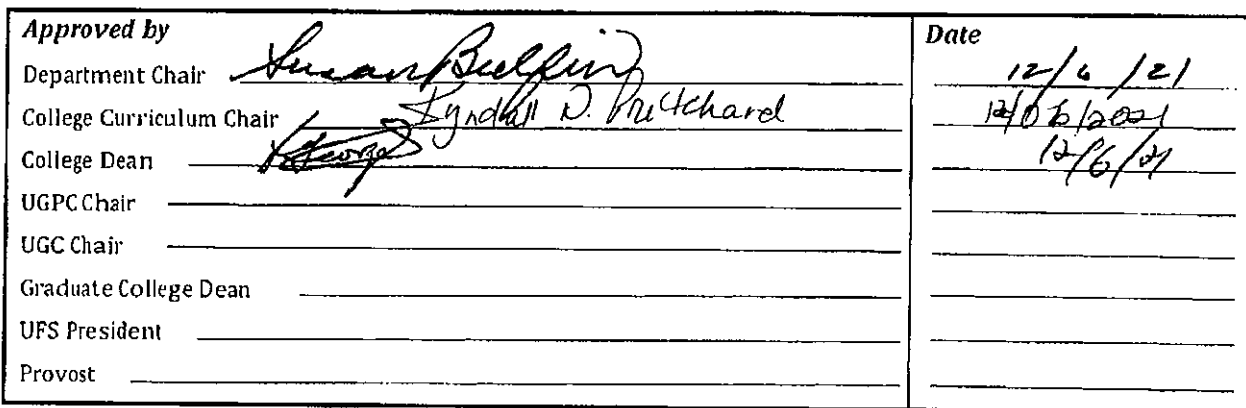 Approved by Date
Department Chair Susan Bulfin 12/6/21
College Curriculum Chair Lyndall D. Pritchard 12/06/2021
College Dean George 12/6/21
UGPC Chair
UGC Chair
Graduate College Dean
UFS President
Provost